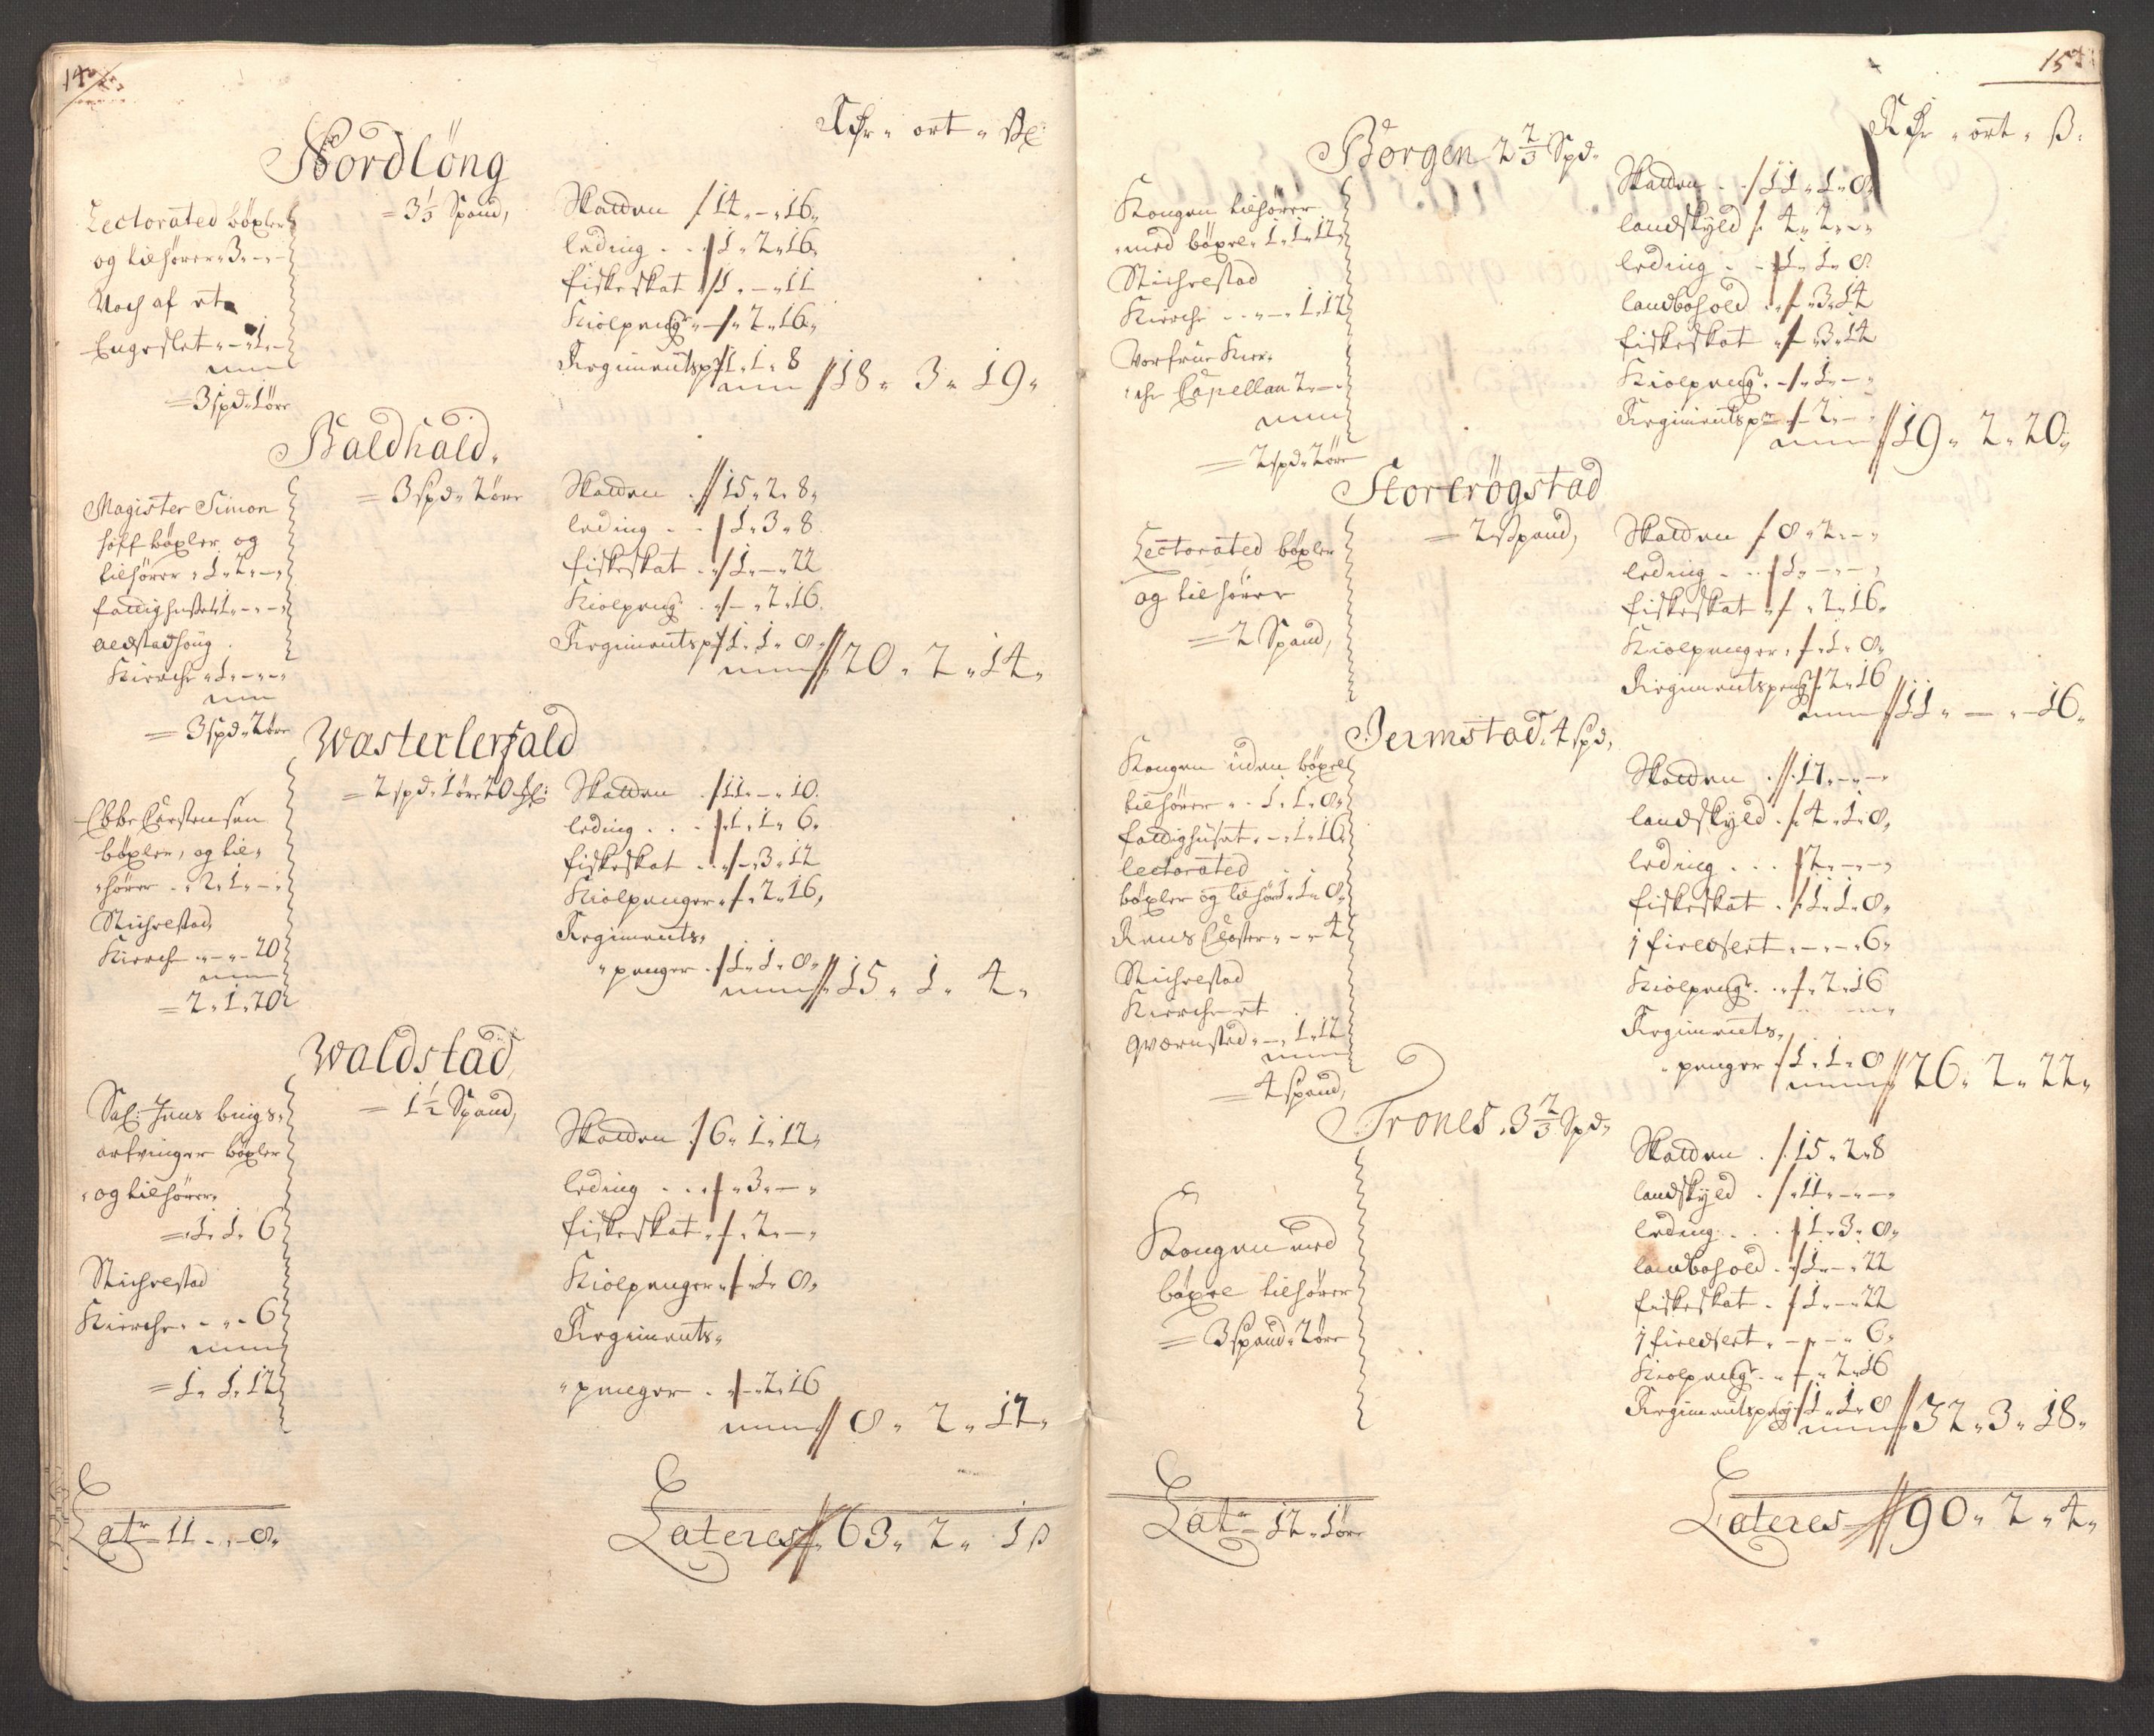 14
Rdr " ort " sk:
Nordlöng
= 3 1/3 Spand,
Lectorated böxler
og tilhører " 3 " - " -
Noch af et
Engeslet " - " 1 " -
= 3 spd " 1 øre
Skatten 14 " - " 16 "
leding . . 1 " 2 " 16 "
fiskeskat 1 " - " 11
Kiølpeng " - " 2 " 16 "
Regimentsp 1 " 1 " 8
18 " 3 " 19 "
Baldhald.
= 3 spd " 2 øre
Magister Simon
hoff böxler og
tilhører " 1 " 2 " - "
fattighuset 1 " - " - "
aldstadhoug
Kirche " 1 " - " - "
= 3 spd " 2 øre
Skatten . 15 " 2 " 8 "
leding . . 1 " 3 " 8
fiskeskat . 1 " - " 22
Kiolpeng . - " 2 " 16
Regimentsp 1 " 1 " 8 "
20 " 2 " 14 "
Wasterlerfald
= 2 spd " 1 øre 20
Ebbe Carstensen
böxler, og til "
" hører . " 2 " 1 " - "
Stichelstad
Kirche " - " - 20
= 2 " 1 " 20
Skatten . 11 " - " 10
leding . . . 1 " 1 " 6 "
fiskeskat . . - " 3 " 12
Kiolpenger " - " 2 " 16 "
Regiments "
" penger . 1 " 1 " 8 "
15 " 1 " 4 "
Waldstad
= 1 1/2 Spand,
Sal: Jens bings "
arfvinger böxler
" og tilhører "
= 1 " 1 " 6
Stichelstad
Kirche " - " - 6
= 1 " 1 " 12
Skatten . 6 " 1 " 12 "
leding . . " - " 3 " - "
fiskeskat " - " 2 " - "
Kiolpenger " - " 1 " 8 "
Regiments "
" penger . " - " 2 " 16
8 " 2 " 12 "
Latr 11 " - " 8 "
Lateres 63 " 2 " 1 ß
15
Rdr " ort " ß:
Borgen 2 2/3 Spd "
Kongen tilhører
" med böxel " 1 " 1 " 12 "
Stichelstad
Kirche . . " - " 1 " 12
Vorfrue Kir "
" che Capellan 2 " - "
= 2 spd " 2 øre
Skatten . . 11 " 1 " 8
landskyld . 4 " 2 " - "
leding . . 1 " 1 " 8
landbohold . " - " 3 " 14
fiskeskat " - " 3 " 14
Kiolpeng . " - " 1 " - "
Regimentsp " - " 2 " - "
19 " 2 " 20 "
Storerögstad
= 2 Spand,
Lectorated böxler
og tilhører
= 2 Spand,
Skatten 8 " 2 " - "
leding . . . 1 " - " - "
fiskeskat " - " 2 " 16 "
Kiolpenger " - " 1 " 8 "
Regimentspeng " 2 " 16
11 " - " 16 "
Jermstad. 4 spd,
Kongen uden böxel
tilhører " . 1 " 1 " 8 "
fattighuset " - " 1 " 16
lectorated
böxler og tilhør 1 " 1 " 8 "
Reins Closter " - " - 4
Stichelstad
Kirche et
qværnsted " - " 1 " 12
= 4 spand,
Skatten . 17 " - " - "
landskyld . 4 " 1 " 8 "
leding . . . 2 " - " - "
fiskeskat . 1 " 1 " 8 "
1 firedsert " - " - " 6 "
Kiolpeng . . " - " 2 " 16
Regiments "
" penger 1 " 1 " 8
26 " 2 " 22 "
Trones. 3 2/3 Spd "
Kongen med
böxel tilhører
= 3 spand " 2 øre
Skatten . . 15 " 2 " 8
landskyld . " 11 " - " - "
leding . . . 1 " 3 " 8 "
landbohold . 1 " - " 22
fiskeskat . 1 " - " 22
1 firedsert " - " - " 6 "
Kiolpeng . " - " 2 " 16
Regimentspeng 1 " 1 " 8
32 " 3 " 18 "
Latr 12 " 1 øre
Lateres 90 " 2 " 4 "